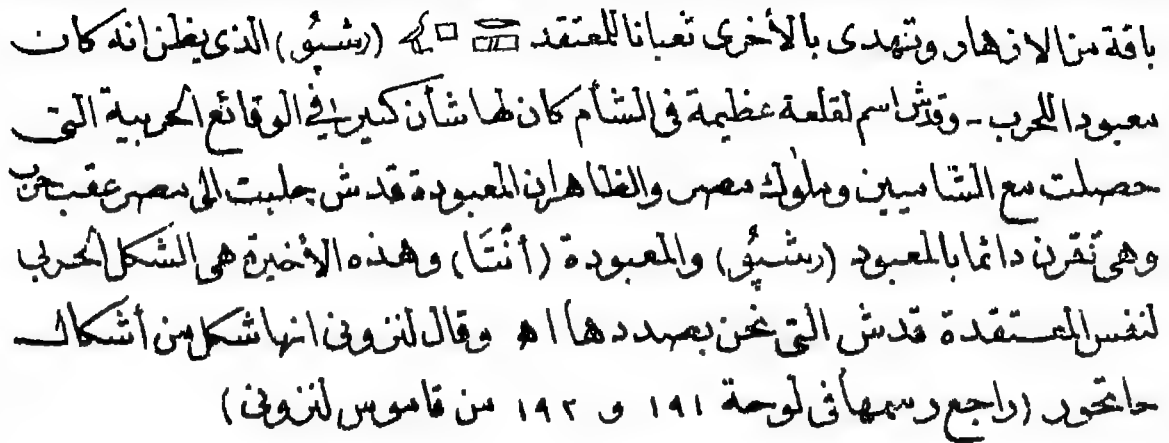 باقة من الازهار وتهدى بالأخرى ثعبانا للمعتقد (رشپُو) الذى يظن انه كان
معبودا للحرب - وقدش اسم لقلعة عظيمة فى الشأم كان لها شأن كبير فى الوقائع الحربية التى
حصلت مع الشاميين وملوك مصر والظاهر ان المعبودة قدش جلبت الى مصر عقب حرب
وهى تقرن دائما بالمعبود (رشپُو) والمعبودة (أنْتَا) وهذه الأخيرة هى الشكل الحربى
لنفس المعتقدة قدش التى نحن بصددها اه وقال لنزونى انها شكل من أشكال
حاتحور (راجع رسمها فى لوحة ١٩١ و ١٩٢ من قاموس لنزونى)